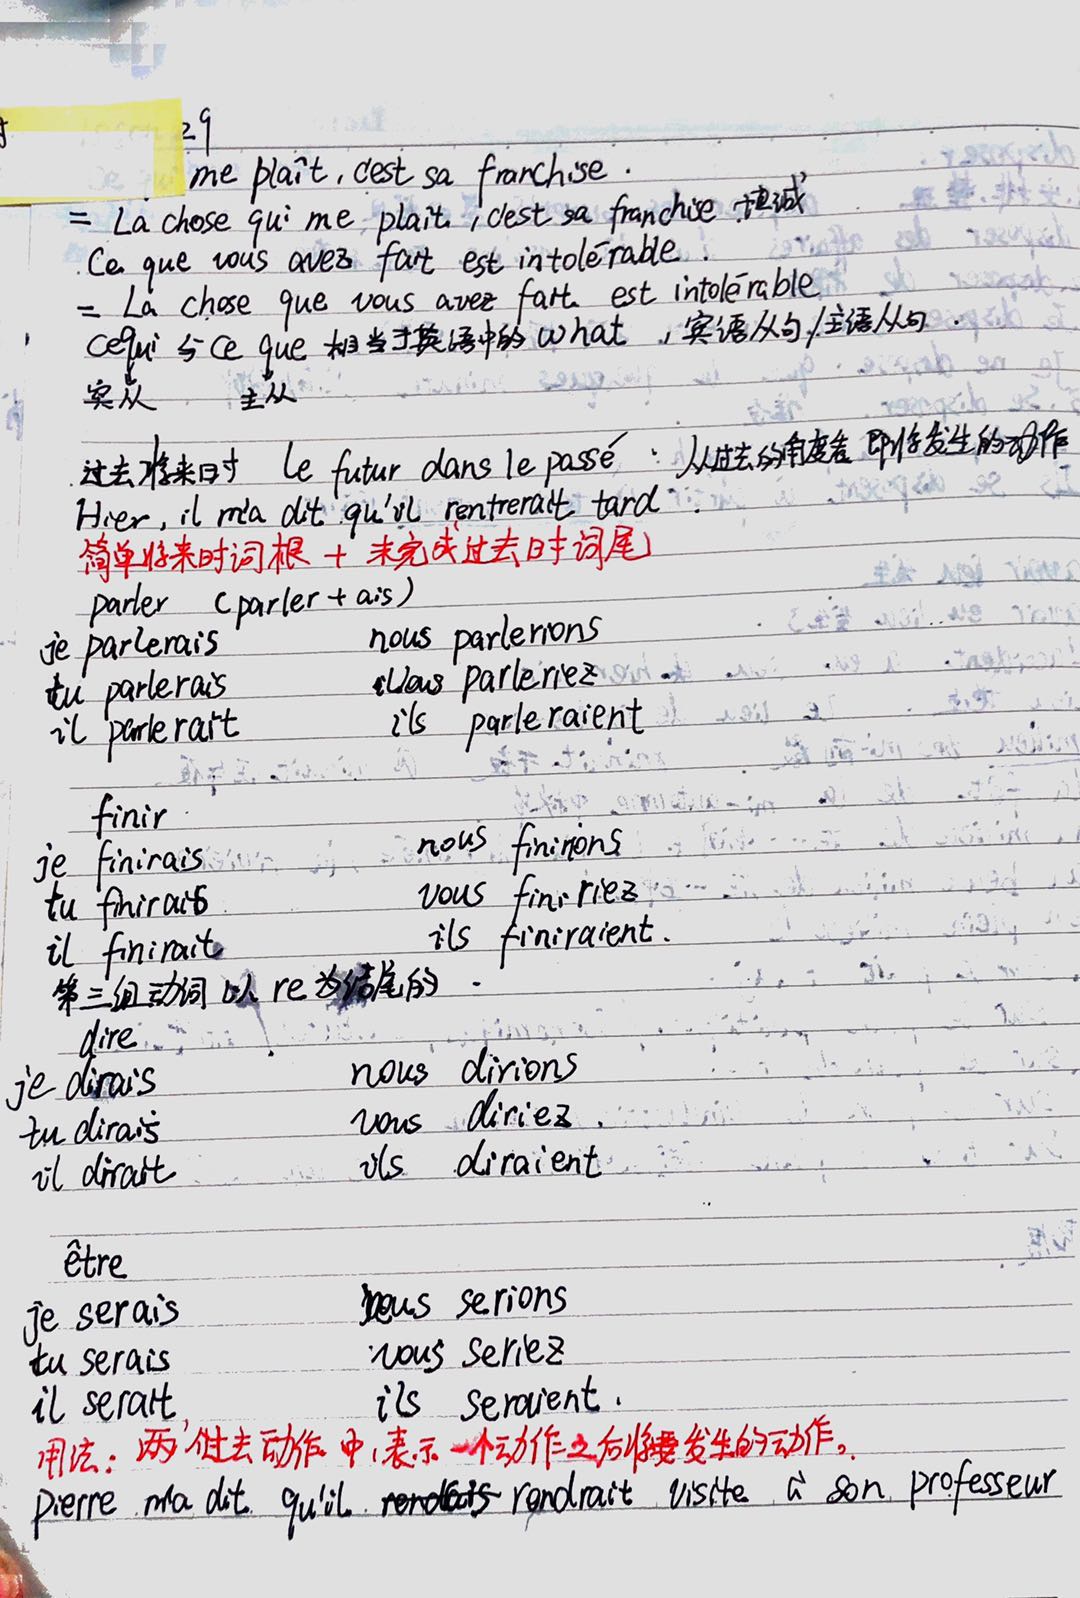 29
me plaît, c'est sa franchise.
= La chose qui me plaît, c'est sa franchise 坦诚
Ce que vous avez fait est intolérable.
= La chose que vous avez fait est intolérable
ce qui 与 ce que 相当于英语中的 what, 宾语从句/主语从句.
宾从 主从
过去将来时 le futur dans le passé: 从过去的角度看 即将发生的动作
Hier, il m'a dit qu'il rentrerait tard.
简单将来时词根 + 未完成过去时词尾
parler (parler + ais)
je parlerais nous parlerions
tu parlerais vous parleriez
il parlerait ils parleraient
finir
je finirais nous finirions
tu finirais vous finiriez
il finirait ils finiraient.
第三组动词以 re 为结尾的.
dire
je dirais nous dirions
tu dirais vous diriez.
il dirait ils diraient
être
je serais nous serions
tu serais vous seriez
il serait ils seraient.
用法: 两个过去动作中, 表示一个动作之后将要发生的动作。
pierre m'a dit qu'il rendrait visite à son professeur